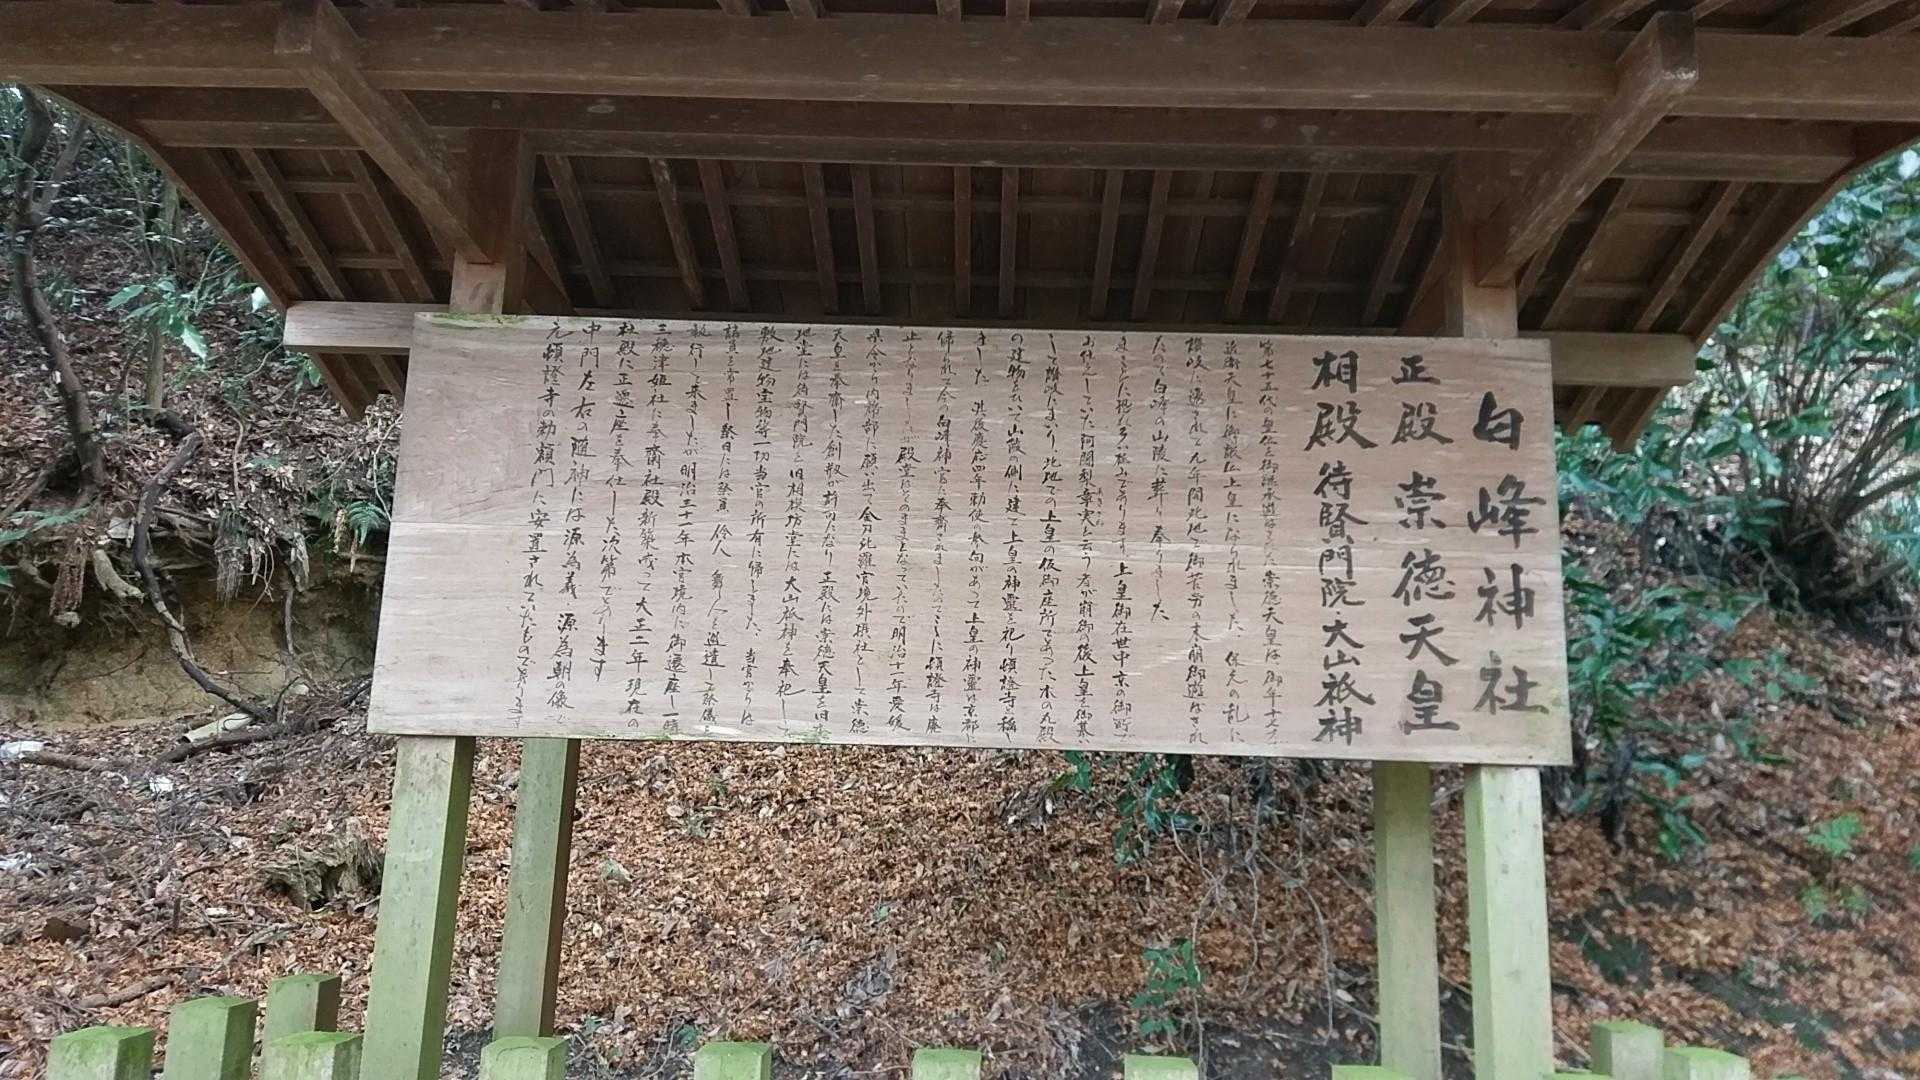 白峰神社
正殿 崇徳天皇
相殿 待賢門院 大山祇神
第七十五代の皇位を御継承遊ばされた崇徳天皇は御年十
近衛天皇に御譲位上皇になられました、保元の乱に
讃岐に遷されて九年間此地で御苦労の末崩御遊ばされ
たので白峰の山陵に葬り奉りました
まことに恐れ多い極みであります、上皇御在世中京の御所で
お仕えしていた阿闍梨章実と云う者が崩御の後上皇を御慕い
して讃岐にまいり、此地での上皇の仮御座所であった木の丸殿
の建物を以て山陵の側に建て上皇の神霊を祀り頓證寺と稱し
ました 此後慶応四年勅使の参向があって上皇の神霊は京都に
帰られて今の白峰神宮に奉斎されましたのでここに頓證寺は廃
止となりましたが殿堂はそのままとなっていたので明治十一年愛媛
県令から内務部に願い出て金刀比羅宮境外摂社として崇徳
天皇を奉斎した創設が許可になり 正殿には崇徳天皇を旧本
地堂には待賢門院を旧相模坊堂には大山祇神を奉祀して
敷地建物宝物等一切当宮の所有に帰しました、当宮からは
詰員を常置し祭日には祭員 伶人 舞人を派遣して祭儀を
執行して来ましたが明治三十一年本宮境内に御遷座し一時
三穂津姫社に奉斎社殿新築成って大正二年現在の
社殿に正遷座を奉仕した次第であります
中門左右の随神には源為義 源為朝の像で
元頓證寺の勅額門に安置されていたものであります